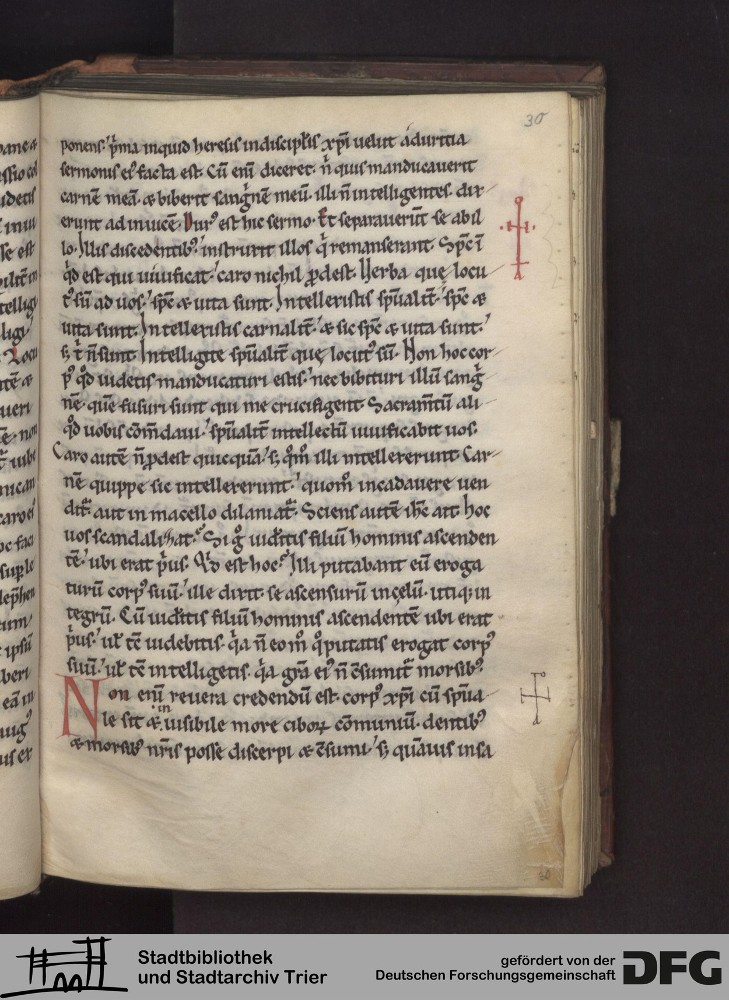 30
ponens. p̄ma inquid heresis in discipl̄is xp̄i uelut a duritia
sermonis ei᷒ facta est. Cū eni᷒ diceret. n̄ quis manducauerit
carnē meā. & biberit sanḡnē meū. illi n̄ intelligentes. dix-
erunt ad inuicē. Dur᷒ est hic sermo. Et separauerūt se ab il
lo. Illis discedentib᷒. instruxit illos q̄ remanserant. Sp̄c ī
q̄d est qui uiuificat. caro nichil ꝓdest. Verba que locu
t᷒ sū ad uos. sp̄c & uita sunt. Intellexistis sp̄ualit̄. sp̄c &
uita sunt. Intellexistis carnalit̄. & sic sp̄c & uita sunt.
s; t̄ n̄ sunt. Intelligite sp̄ualit̄ que locut᷒ sū. Non hoc cor-
p᷒ q̄d uidetis manducaturi estis. nec bibituri illū sanḡ
nē. quē fusuri sunt qui me crucifigent. Sacram̄tū ali-
q̄d uobis cōmdaui. sp̄ualit̄ intellectū uiuificabit uos.
Caro autē n̄ ꝓdest quicquā. s; q̄m̄ illi intellexerunt. Car-
nē quippe sic intellexerunt. quom̄ in cadauere uen
dit̄. aut in macello dilaniat̄. Sciens autē ih̄c ait. hoc
uos scandalizat. Si g̊ uid̄itis filiū hominis ascenden
tē. ubi erat p̄us. Q̄d est hoc. Illi putabant eū eroga
turū corp᷒ suū. ille dixit se ascensurū in celū. utiq; in
tegrū. Cū uid̄itis filiū hominis ascendentē ubi erat
p̄us. ul̄ t̄c uidebitis. q̄a n̄ eo m̊ q̊ putatis erogat corp᷒
suū. ul̄ t̄c intelligetis. q̄a gr̄a ei᷒ n̄ c̄sumit̄ morsib᷒.
Non eni᷒ reuera credendū est. corp᷒ xp̄i cū sp̄ua-
le sit & in uisibile more ciboꝝ cōmuniū. dentib᷒
& morsib᷒ nr̄is posse discerpi & c̄sumi. s; quāuis in sa
30
Stadtbibliothek
und Stadtarchiv Trier
gefördert von der
Deutschen Forschungsgemeinschaft
DFG